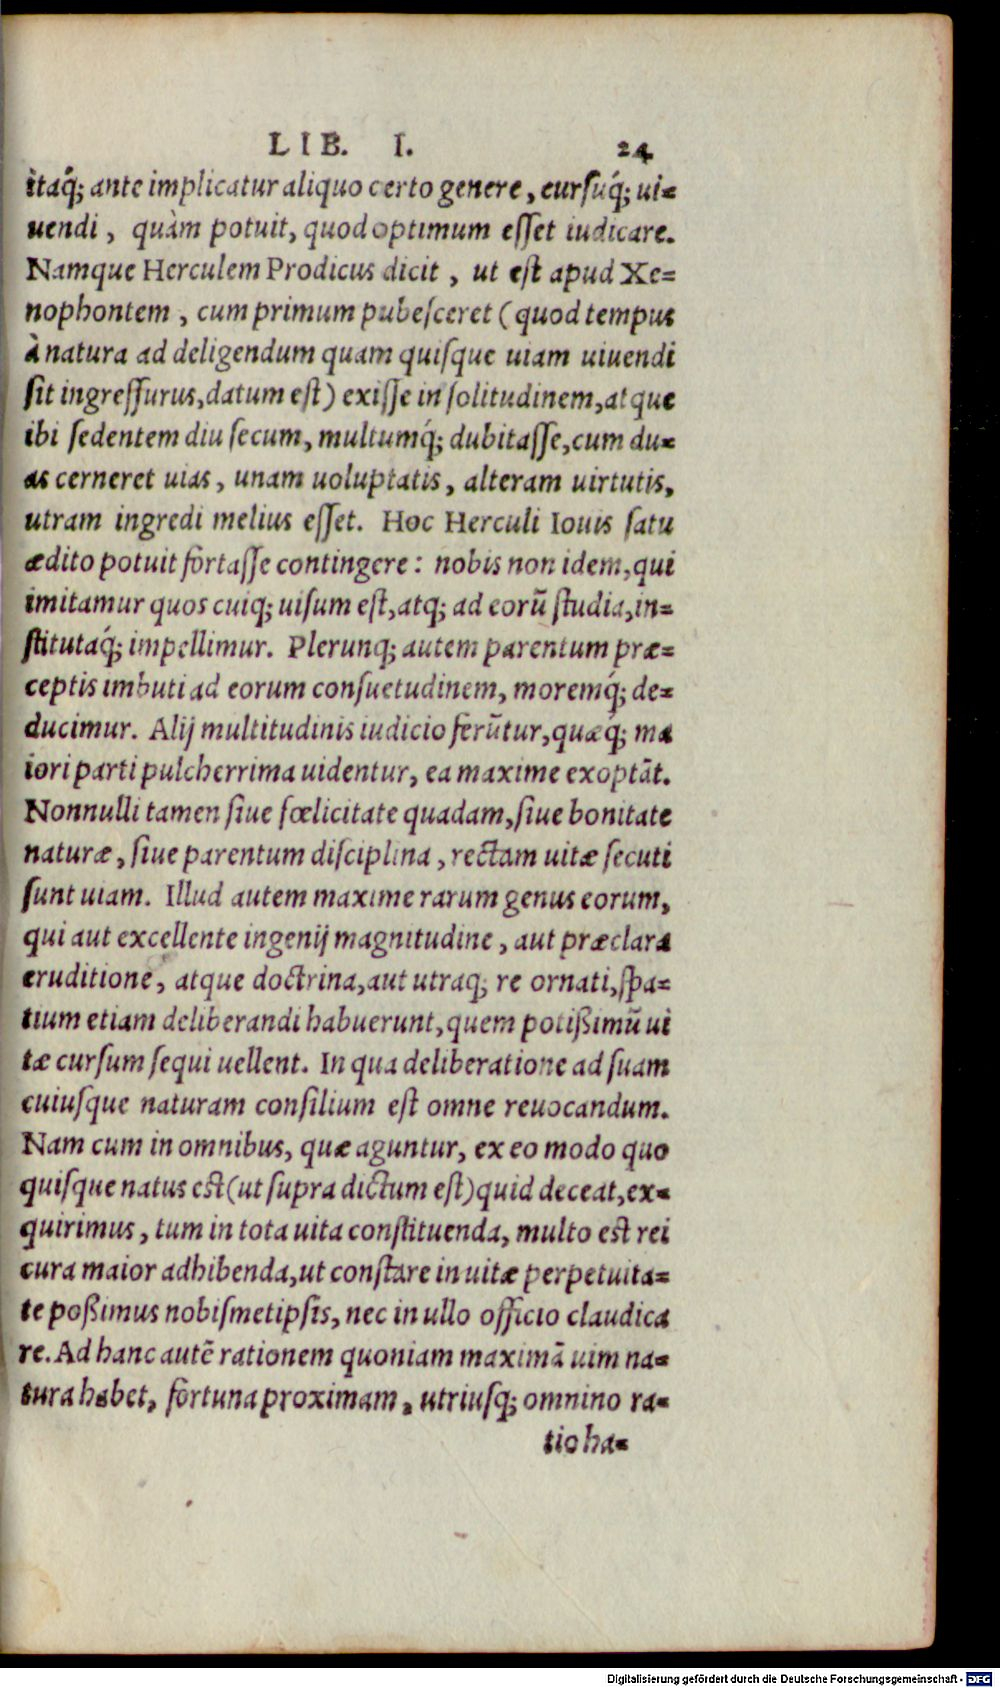 LIB. I. 24
itaq́; ante implicatur aliquo certo genere, cursuq́; ui=
uendi, quàm potuit, quod optimum esset iudicare.
Namque Herculem Prodicus dicit, ut est apud Xe=
nophontem, cum primum pubesceret (quod tempus
à natura ad deligendum quam quisque uiam uiuendi
sit ingressurus, datum est) exisse in solitudinem, atque
ibi sedentem diu secum, multumq́; dubitasse, cum du=
as cerneret uias, unam uoluptatis, alteram uirtutis,
utram ingredi melius esset. Hoc Herculi Iouis satu
ædito potuit fortasse contingere: nobis non idem, qui
imitamur quos cuiq; uisum est, atq; ad eorũ studia, in=
stitutaq́; impellimur. Plerunq; autem parentum præ=
ceptis imbuti ad eorum consuetudinem, moremq́; de=
ducimur. Alij multitudinis iudicio ferũtur, quæq́; ma
iori parti pulcherrima uidentur, ea maxime exoptãt.
Nonnulli tamen siue fœlicitate quadam, siue bonitate
naturæ, siue parentum disciplina, rectam uitæ secuti
sunt uiam. Illud autem maxime rarum genus eorum,
qui aut excellente ingenij magnitudine, aut præclara
eruditione, atque doctrina, aut utraq; re ornati, spa=
tium etiam deliberandi habuerunt, quem potißimũ ui
tæ cursum sequi uellent. In qua deliberatione ad suam
cuiusque naturam consilium est omne reuocandum.
Nam cum in omnibus, quæ aguntur, ex eo modo quo
quisque natus est (ut supra dictum est) quid deceat, ex=
quirimus, tum in tota uita constituenda, multo est rei
cura maior adhibenda, ut constare in uitæ perpetuita=
te poßimus nobismetipsis, nec in ullo officio claudica
re. Ad hanc autẽ rationem quoniam maximã uim na=
tura habet, fortuna proximam, utriusq; omnino ra=
tio ha=
Digitalisierung gefördert durch die Deutsche Forschungsgemeinschaft - DFG